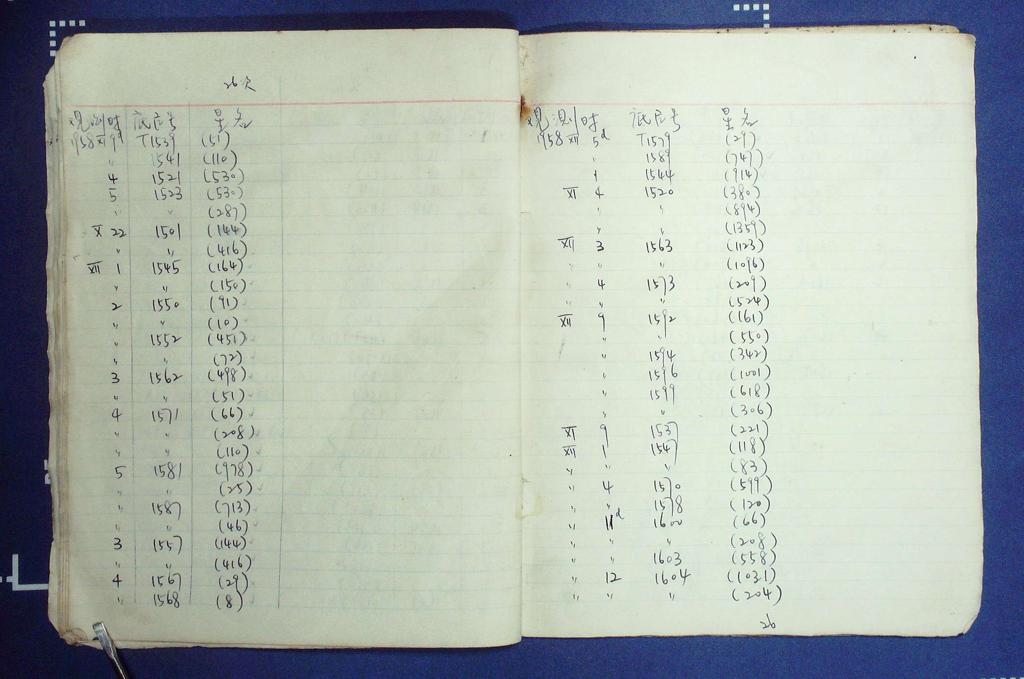 26次
观测时 底片号 星名
1958 XI 9d T1539 (51)
" 1541 (110)
4 1521 (530)
5 1523 (530)
" " (287)
X 22 1501 (144)
" " (416)
XII 1 1545 (164)
" " (150)
2 1550 (91)
" " (10)
" 1552 (451)
" " (72)
3 1562 (498)
" " (51)
4 1571 (66)
" " (208)
" " (110)
5 1581 (978)
" " (25)
" 1587 (713)
" " (46)
3 1557 (144)
" " (416)
4 1567 (29)
" 1568 (8)
观测时 底片号 星名
1958 XII 5d T1579 (29)
" 1589 (747)
1 1544 (914)
XI 4 1520 (380)
" " (894)
" " (1359)
XII 3 1563 (1123)
" " (1096)
4 1573 (209)
" " (524)
XII 9 1592 (161)
" " (550)
" 1594 (342)
" 1596 (1001)
" 1599 (618)
" " (306)
XI 9 1537 (221)
XII 1 1547 (118)
" " " (83)
" 4 1570 (599)
" " 1578 (120)
" 11d 1600 (66)
" " " (208)
" " 1603 (558)
" 12 1604 (1031)
" " " (204)
26